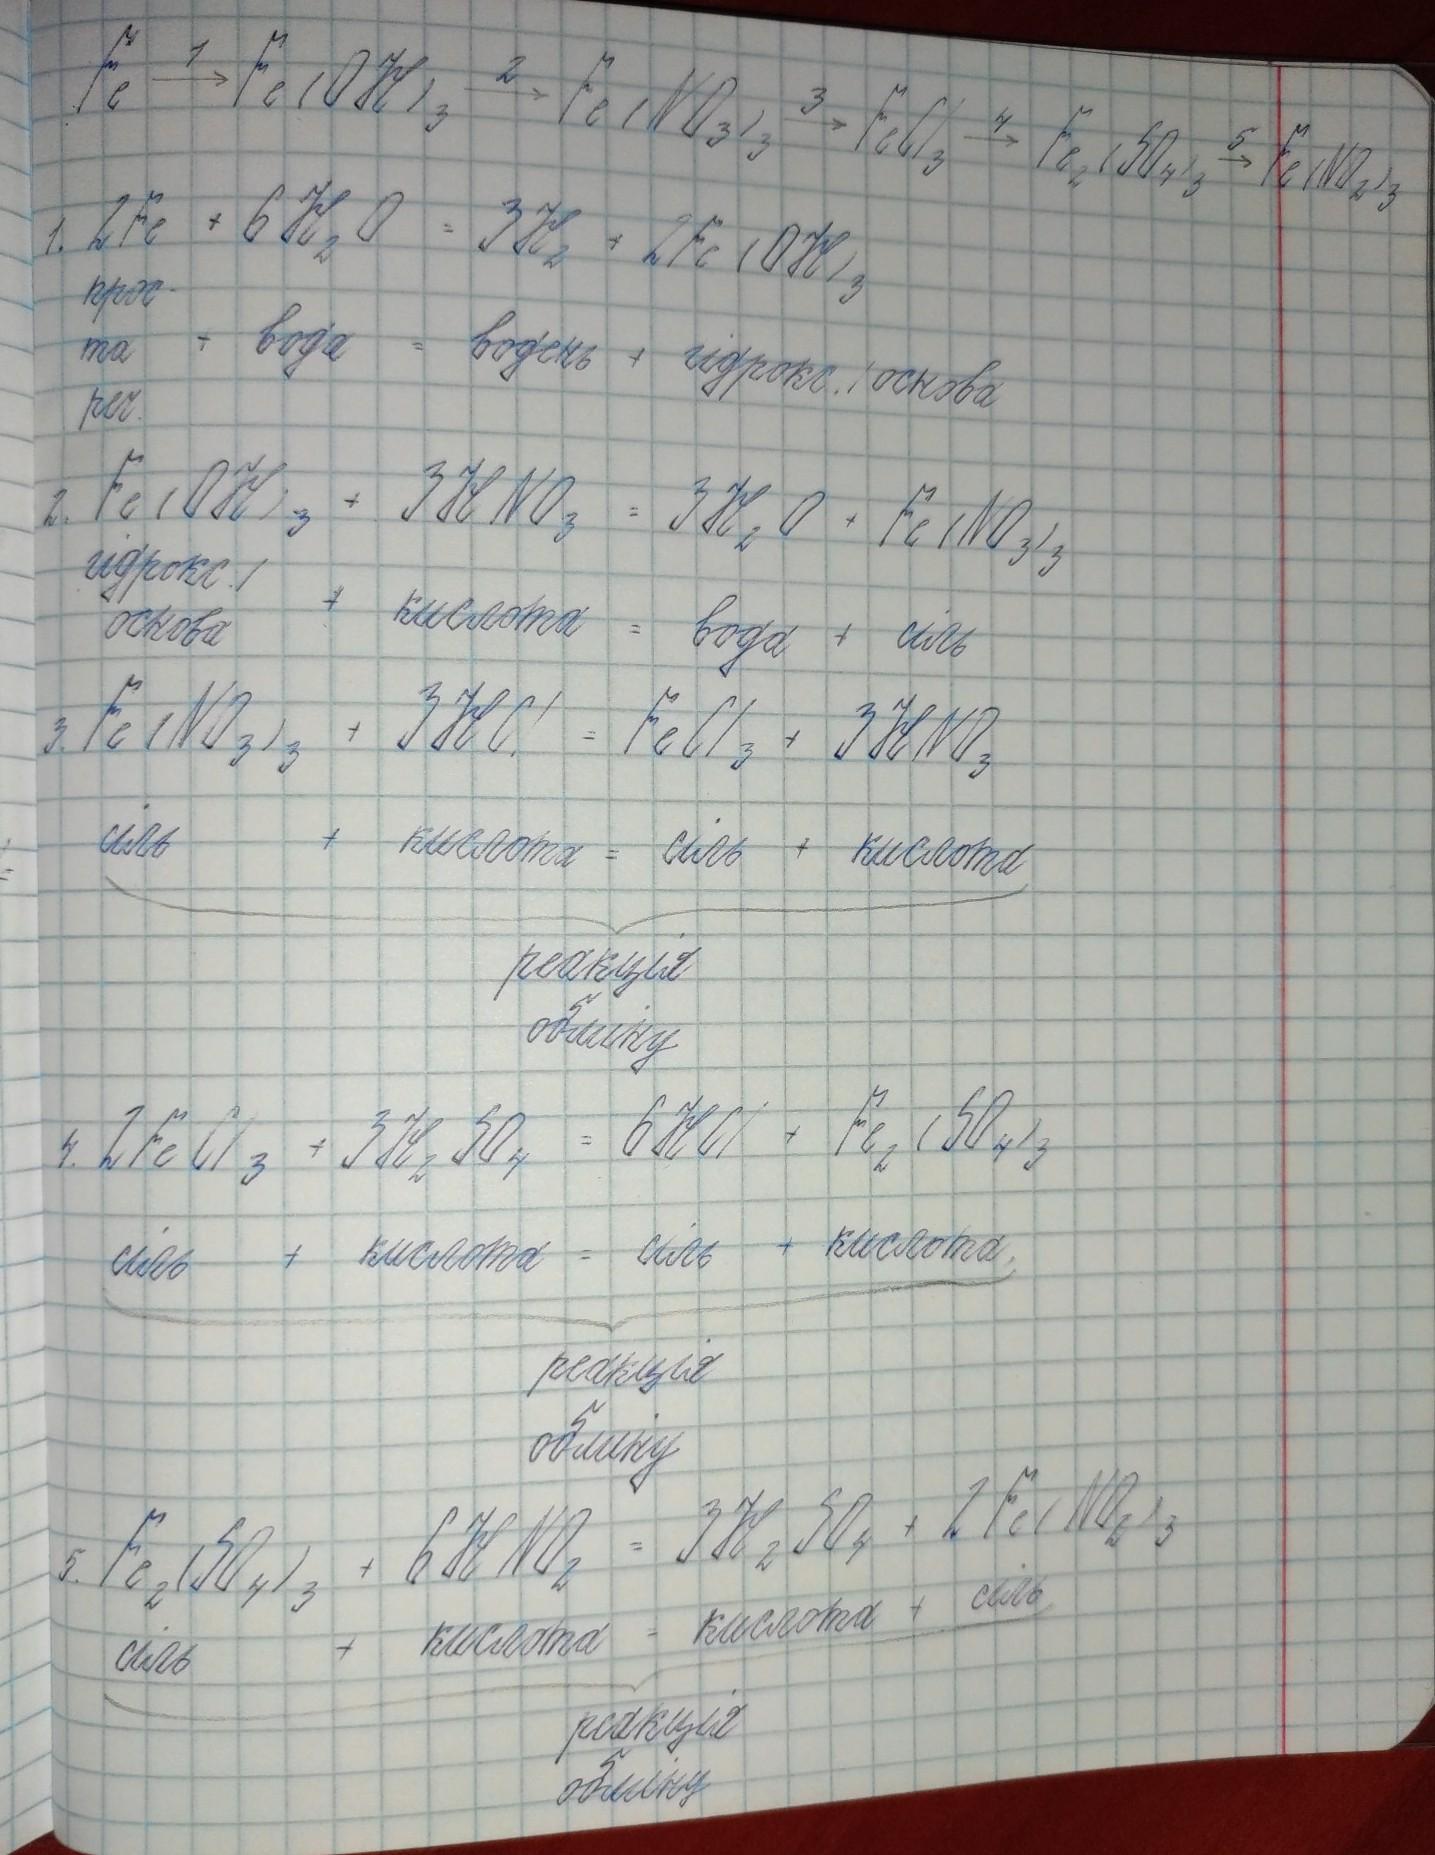 Fe —1→ Fe(OH)₃ —2→ Fe(NO₃)₃ —3→ FeCl₃ —4→ Fe₂(SO₄)₃ —5→ Fe(NO₂)₃
1. 2Fe + 6H₂O = 3H₂ + 2Fe(OH)₃
прос-
та + вода = водень + гідрокс./основа
реч.
2. Fe(OH)₃ + 3HNO₃ = 3H₂O + Fe(NO₃)₃
гідрокс./
основа + кислота = вода + сіль
3. Fe(NO₃)₃ + 3HCl = FeCl₃ + 3HNO₃
сіль + кислота = сіль + кислота
реакція
обміну
4. 2FeCl₃ + 3H₂SO₄ = 6HCl + Fe₂(SO₄)₃
сіль + кислота = сіль + кислота
реакція
обміну
5. Fe₂(SO₄)₃ + 6HNO₂ = 3H₂SO₄ + 2Fe(NO₂)₃
сіль + кислота = кислота + сіль
реакція
обміну